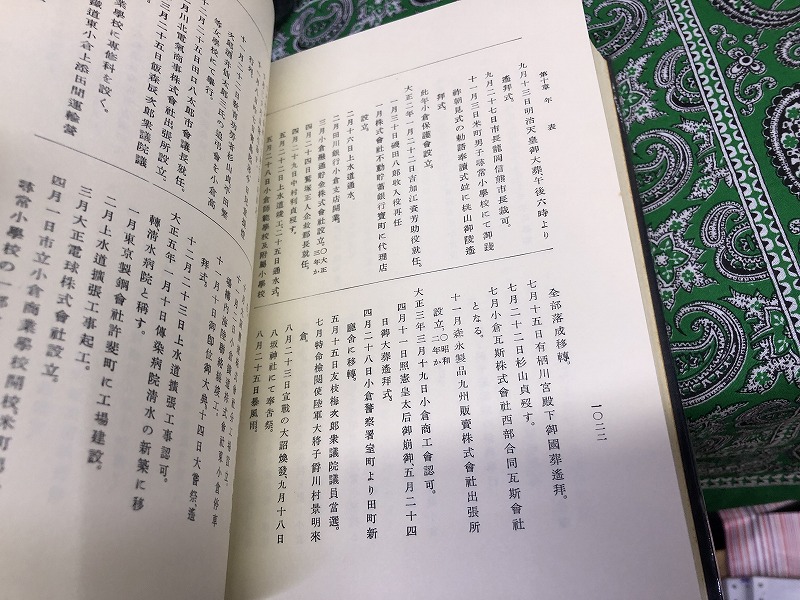 第十章 年表
一〇二二
九月十三日明治天皇御大葬午後六時より
遙拜式。
九月二十七日市長龍岡信熊市長裁可。
十一月三日米町男子尋常小學校にて御踐
祚朝見式の勅語奉讀式竝に桃山御陵遙
拜式。
此年小倉保護會設立。
大正二年一月二十二日吉加江養芳助役就任。
一月三十日磯田八郎收入役再任
一月株式會社不動貯蓄銀行寶町に代理店
設立。
二月十六日上水道通水。
二月田川銀行小倉支店開業。
三月小倉融通貯金株式會社設立。〇大正三年か
四月二十四日飯塚正人企救郡長就任。
四月二十九日中村利貞歿す。
五月二十二日上水道竣工二十五日通水式。
五月二十八日小倉師範學校及附屬小學校
全部落成移轉。
七月十五日有栖川宮殿下御國葬遙拜。
七月二十二日杉山貞歿す。
七月小倉瓦斯株式會社西部合同瓦斯會社
となる。
十一月森永製品九州販賣株式會社出張所
設立。〇昭和二年か
大正三年三月十九日小倉商工會認可。
四月十一日照憲皇太后御崩御五月二十四
日御大葬遙拜式。
四月二十八日小倉警察署室町より田町新
廳舍に移轉。
五月十五日友枝梅次郎衆議院議員當選。
七月特命檢閲使陸軍大將子爵川村景明來
倉。
八月二十三日宣戰の大詔煥發、九月十八日
八坂神社にて奉告祭。
八月二十五日暴風雨。
等女學校にて擧行。
十二月二十五日田口八太郎市會議長就任。
月川北電氣商事株式會社出張所設立。
三月二十五日飯森辰次郎衆議院議
業學校に專修科を設く。
鐵道東小倉上添田間運輸營
十一月十日御卽位御大典十四日大嘗祭、遙
拜式。
十二月二十三日上水道擴張工事認可。
大正五年一月十日傳染病院清水の新築に移
轉清水病院と稱す。
一月東京製鋼會社許斐町に工場建設。
二月上水道擴張工事起工。
三月大正電球株式會社設立。
四月一日市立小倉商業學校開校、米町
尋常小學校の一部